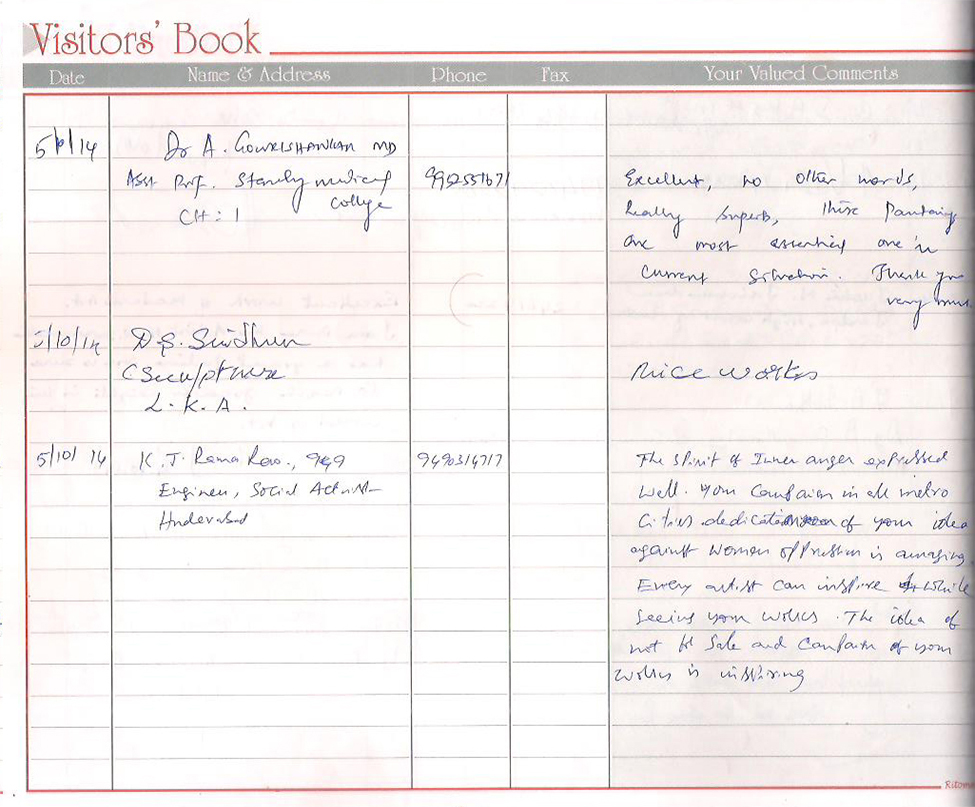 Visitors' Book
Date Name & Address Phone Fax Your Valued Comments
Dr A. Gowrishankar MD
Asst Prof. Stanly medical
college
CH: 1
Excellent, no other words,
Really superb, these Paintings
are most essential one in
current situation. Thank you
very much
5/10/14
D.S.
(Sculpture
L. K. A.
Nice works
5/10/14 K. J. Rama Rao.,
Engineer, Social Activist
Hyderabad
9490314717
The spirit of Inner anger expressed
well. your Campaign in all metro
Cities dedication of your idea
against Women oppression is amazing.
Every artist can inspire while
seeing your works. The idea of
not for Sale and Campaign of your
works is inspiring